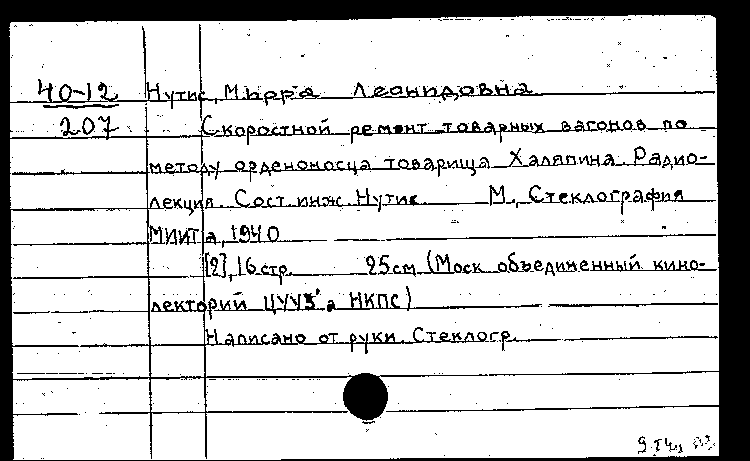 40-12 Нутис, Мирра Леонидовна
207 Скоростной ремонт товарных вагонов по
методу орденоносца товарища Халяпина. Радио-
лекция. Сост. инж. Нутис. М., Стеклография
МИИТ'а, 1940
[2], 16 стр. 25 см. (Моск. объединенный кино-
лекторий ЦУУЗ'а НКПС)
Написано от руки. Стеклогр.